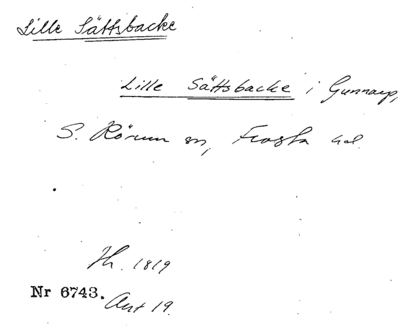 Lille Sättsbacke
Lille Sättsbacke i Gunnarp,
S. Rörum sn, Frosta hd.
Th. 1819
Nr 6743.
Akt 19.